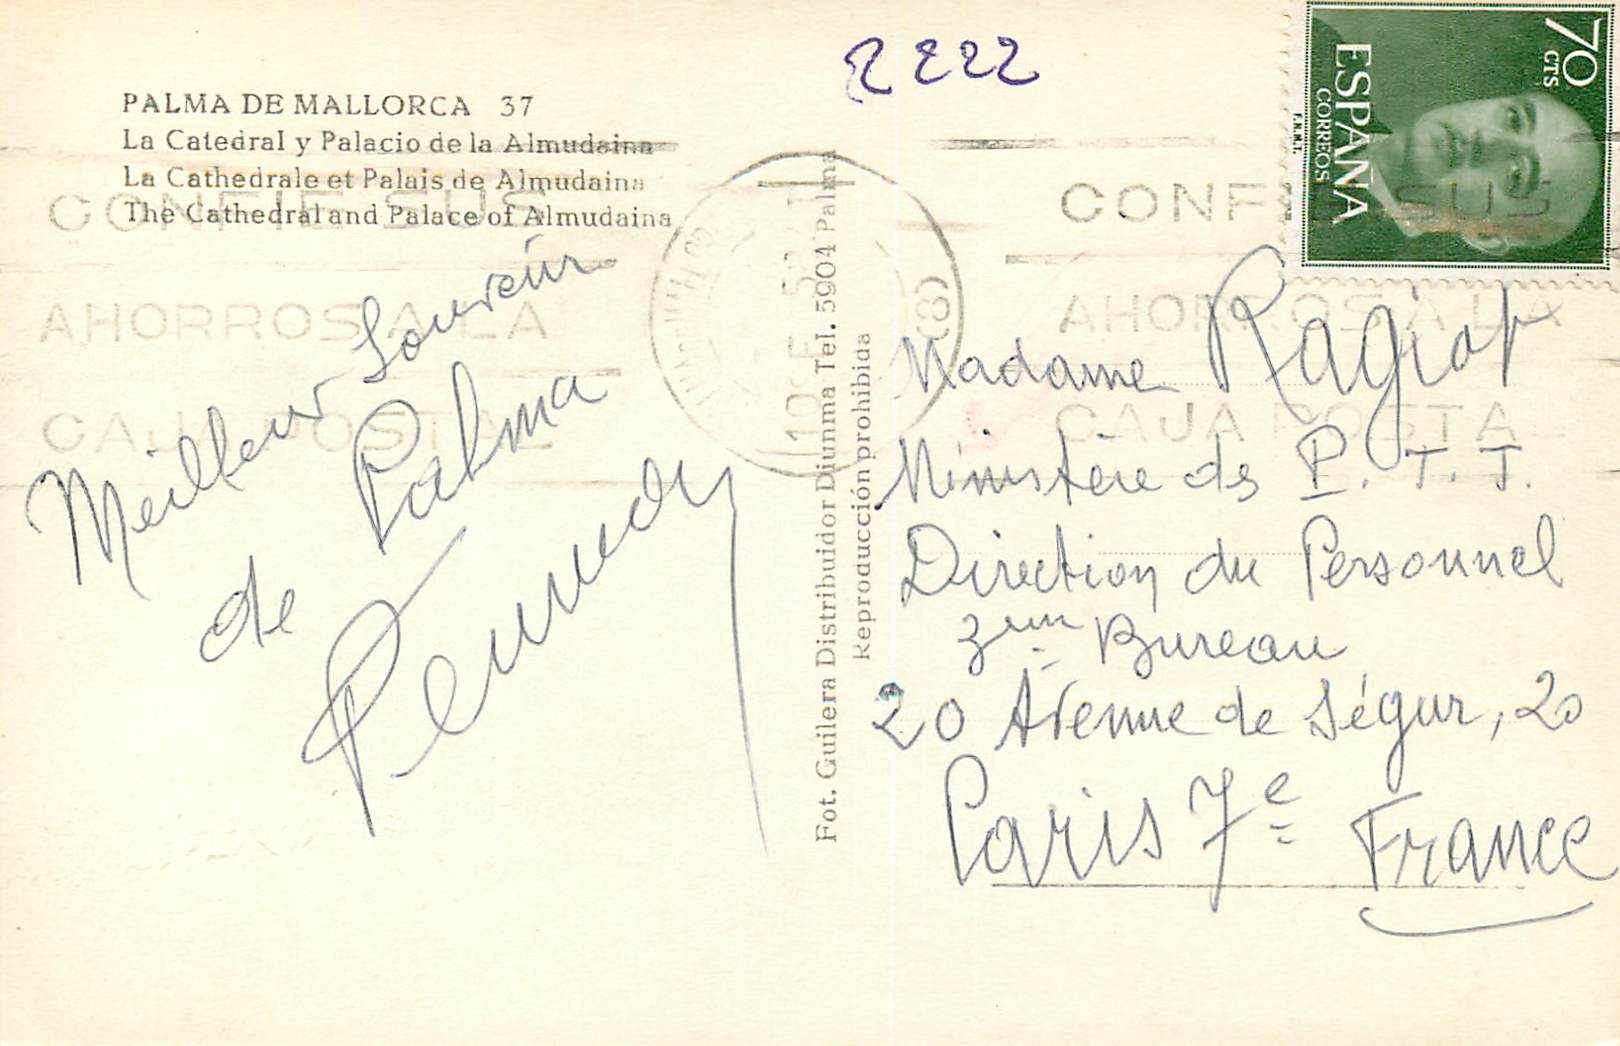 PALMA DE MALLORCA 37
La Catedral y Palacio de la Almudaina
La Cathedrale et Palais de Almudaina
The Cathedral and Palace of Almudaina
2222
70 CTS
ESPAÑA
CORREOS
F.N.M.T.
CONFIE SUS
AHORROS A LA
CAJA POSTAL
CONFIE SUS
AHORROS A LA
CAJA POSTA
Meilleur Souvenir
de Palma
Fot. Guilera Distribuidor Diunma Tel. 5904 Palma
Reproducción prohibida
Madame Ragiot
Ministère des P. T. T.
Direction du Personnel
3em Bureau
20 Avenue de Ségur, 20
Paris 7e France